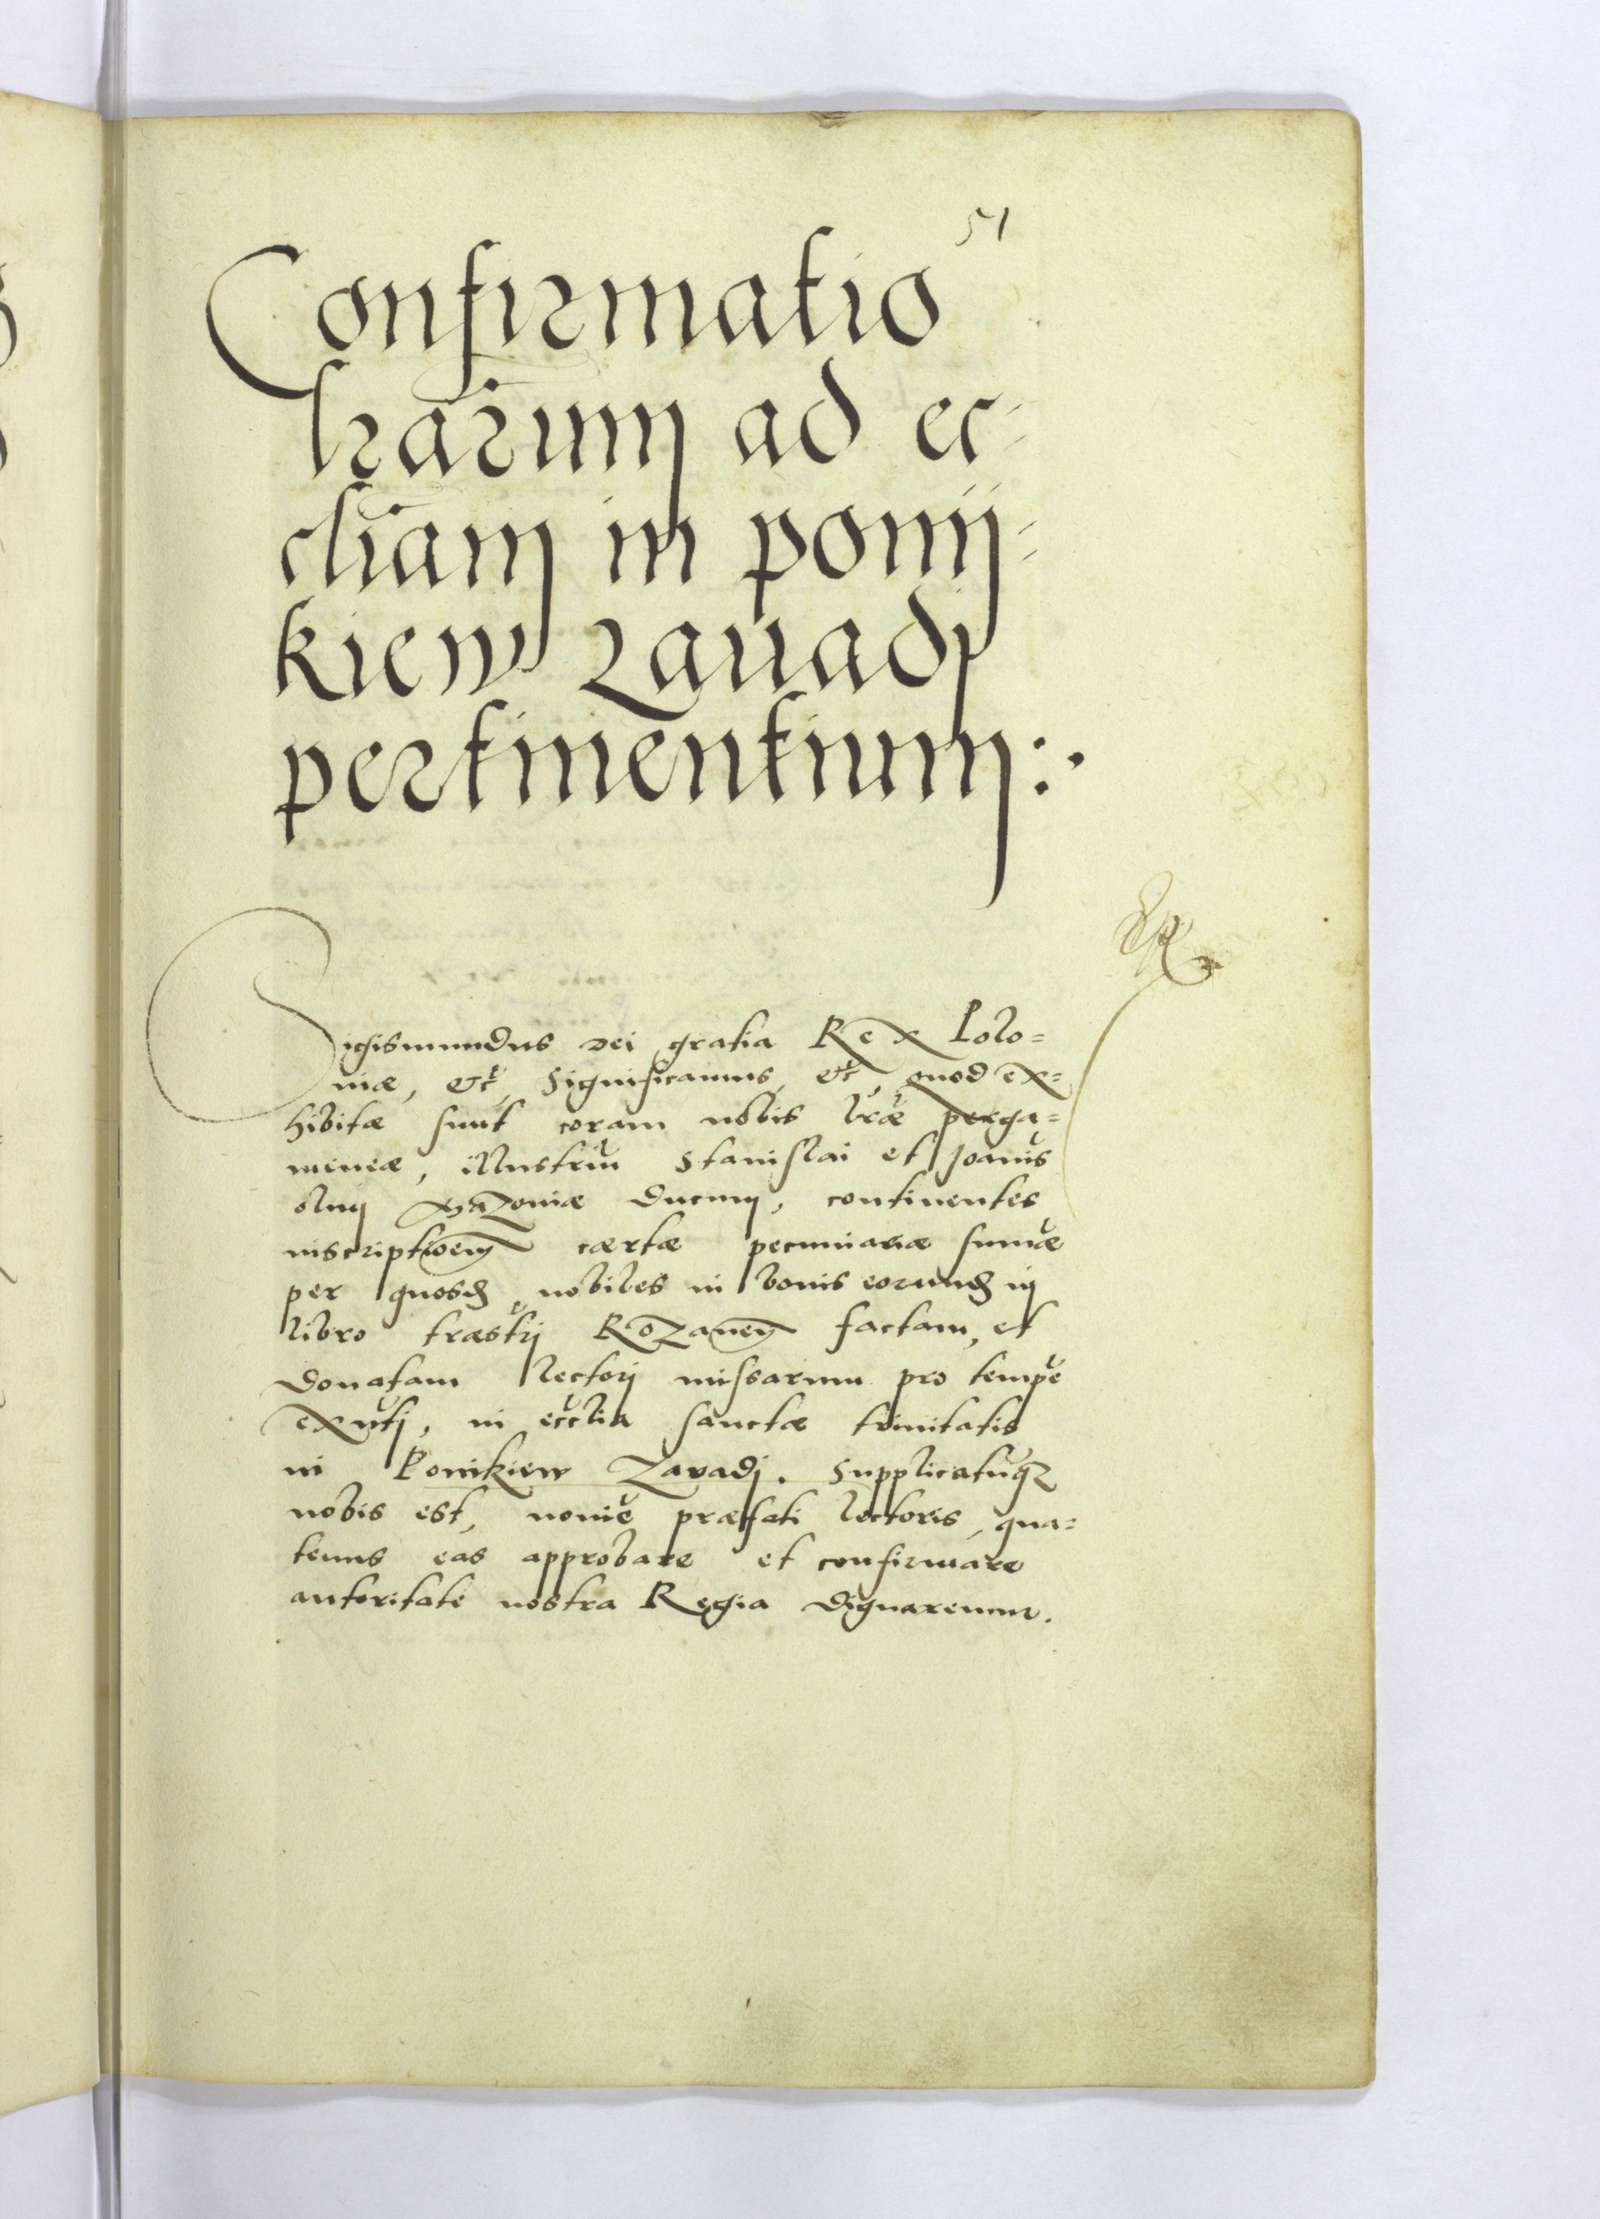 51
Confirmatio
lrarum ad ec-
cliam in ponij-
kiew zauadj
pertinentium:
Sigismundus Dei gratia Rex Polo=
niæ, etc, Significamus, etc, quod ex=
hibitæ sunt coram nobis lræ perga=
meneæ, illustriu Stanislai et Joanis
olim Mazoniæ Ducum, continentes
inscriptioem cærtæ pecuniariæ sumæ
per quosd nobiles in bonis eorund in
libro træstrj Rozanen factam, et
donatam lectorj missarum pro tempe
exntj, in ecclia sanctæ trinitatis
in Ponikiew Zavadj. Supplicatuq
nobis est, nomie præfati lectoris, qua=
tenus eas approbare et confirmare
autoritate nostra Regia dignaremur.